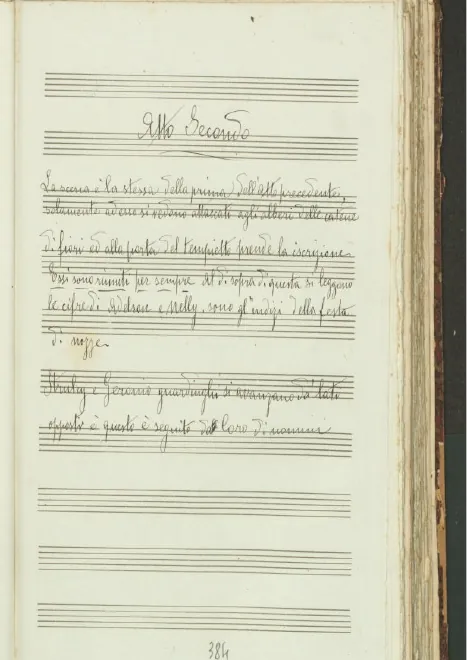 Atto Secondo
La scena è la stessa della prima dell'atto precedente,
solamente ad essi si vedono attaccati agli alberi delle catene
di fiori ed alla porta del tempietto prende la iscrizione
Essi sono riuniti per sempre al di sopra di questa si leggono
le cifre di Adelson e Nelly, sono gl'indizi della festa
di nozze
Struley e Geronio guardinghi si avanzano da' lati
opposti è questo è seguito dal Coro di uomini
384